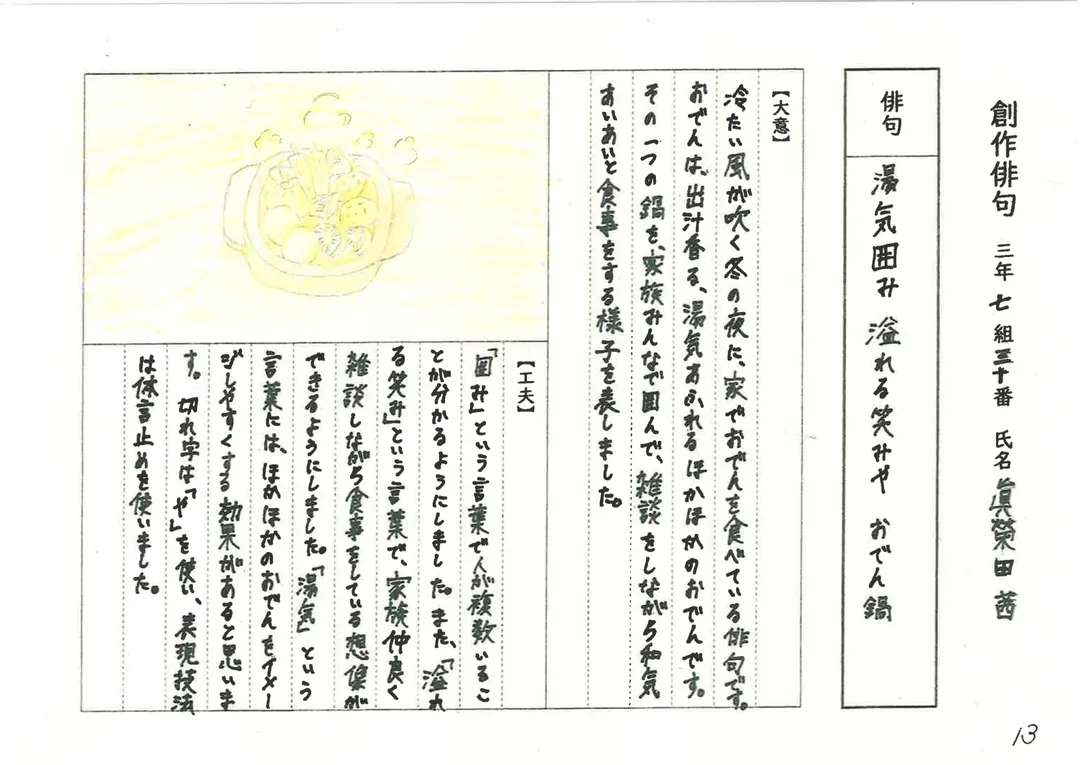 創作俳句 三年 七組 三十番 氏名 眞榮田 茜
俳句
湯気囲み 溢れる笑みや おでん鍋
【大意】
冷たい風が吹く冬の夜に、家でおでんを食べている俳句です。
おでんは、出汁香る、湯気あふれるほかほかのおでんです。
その一つの鍋を、家族みんなで囲んで、雑談をしながら和気
あいあいと食事をする様子を表しました。
【工夫】
「囲み」という言葉で人が複数いるこ
とが分かるようにしました。また、「溢れ
る笑み」という言葉で、家族仲良く
雑談しながら食事をしている想像が
できるようにしました。「湯気」という
言葉には、ほかほかのおでんをイメー
ジしやすくする効果があると思いま
す。切れ字は「や」を使い、表現技法
は体言止めを使いました。
13